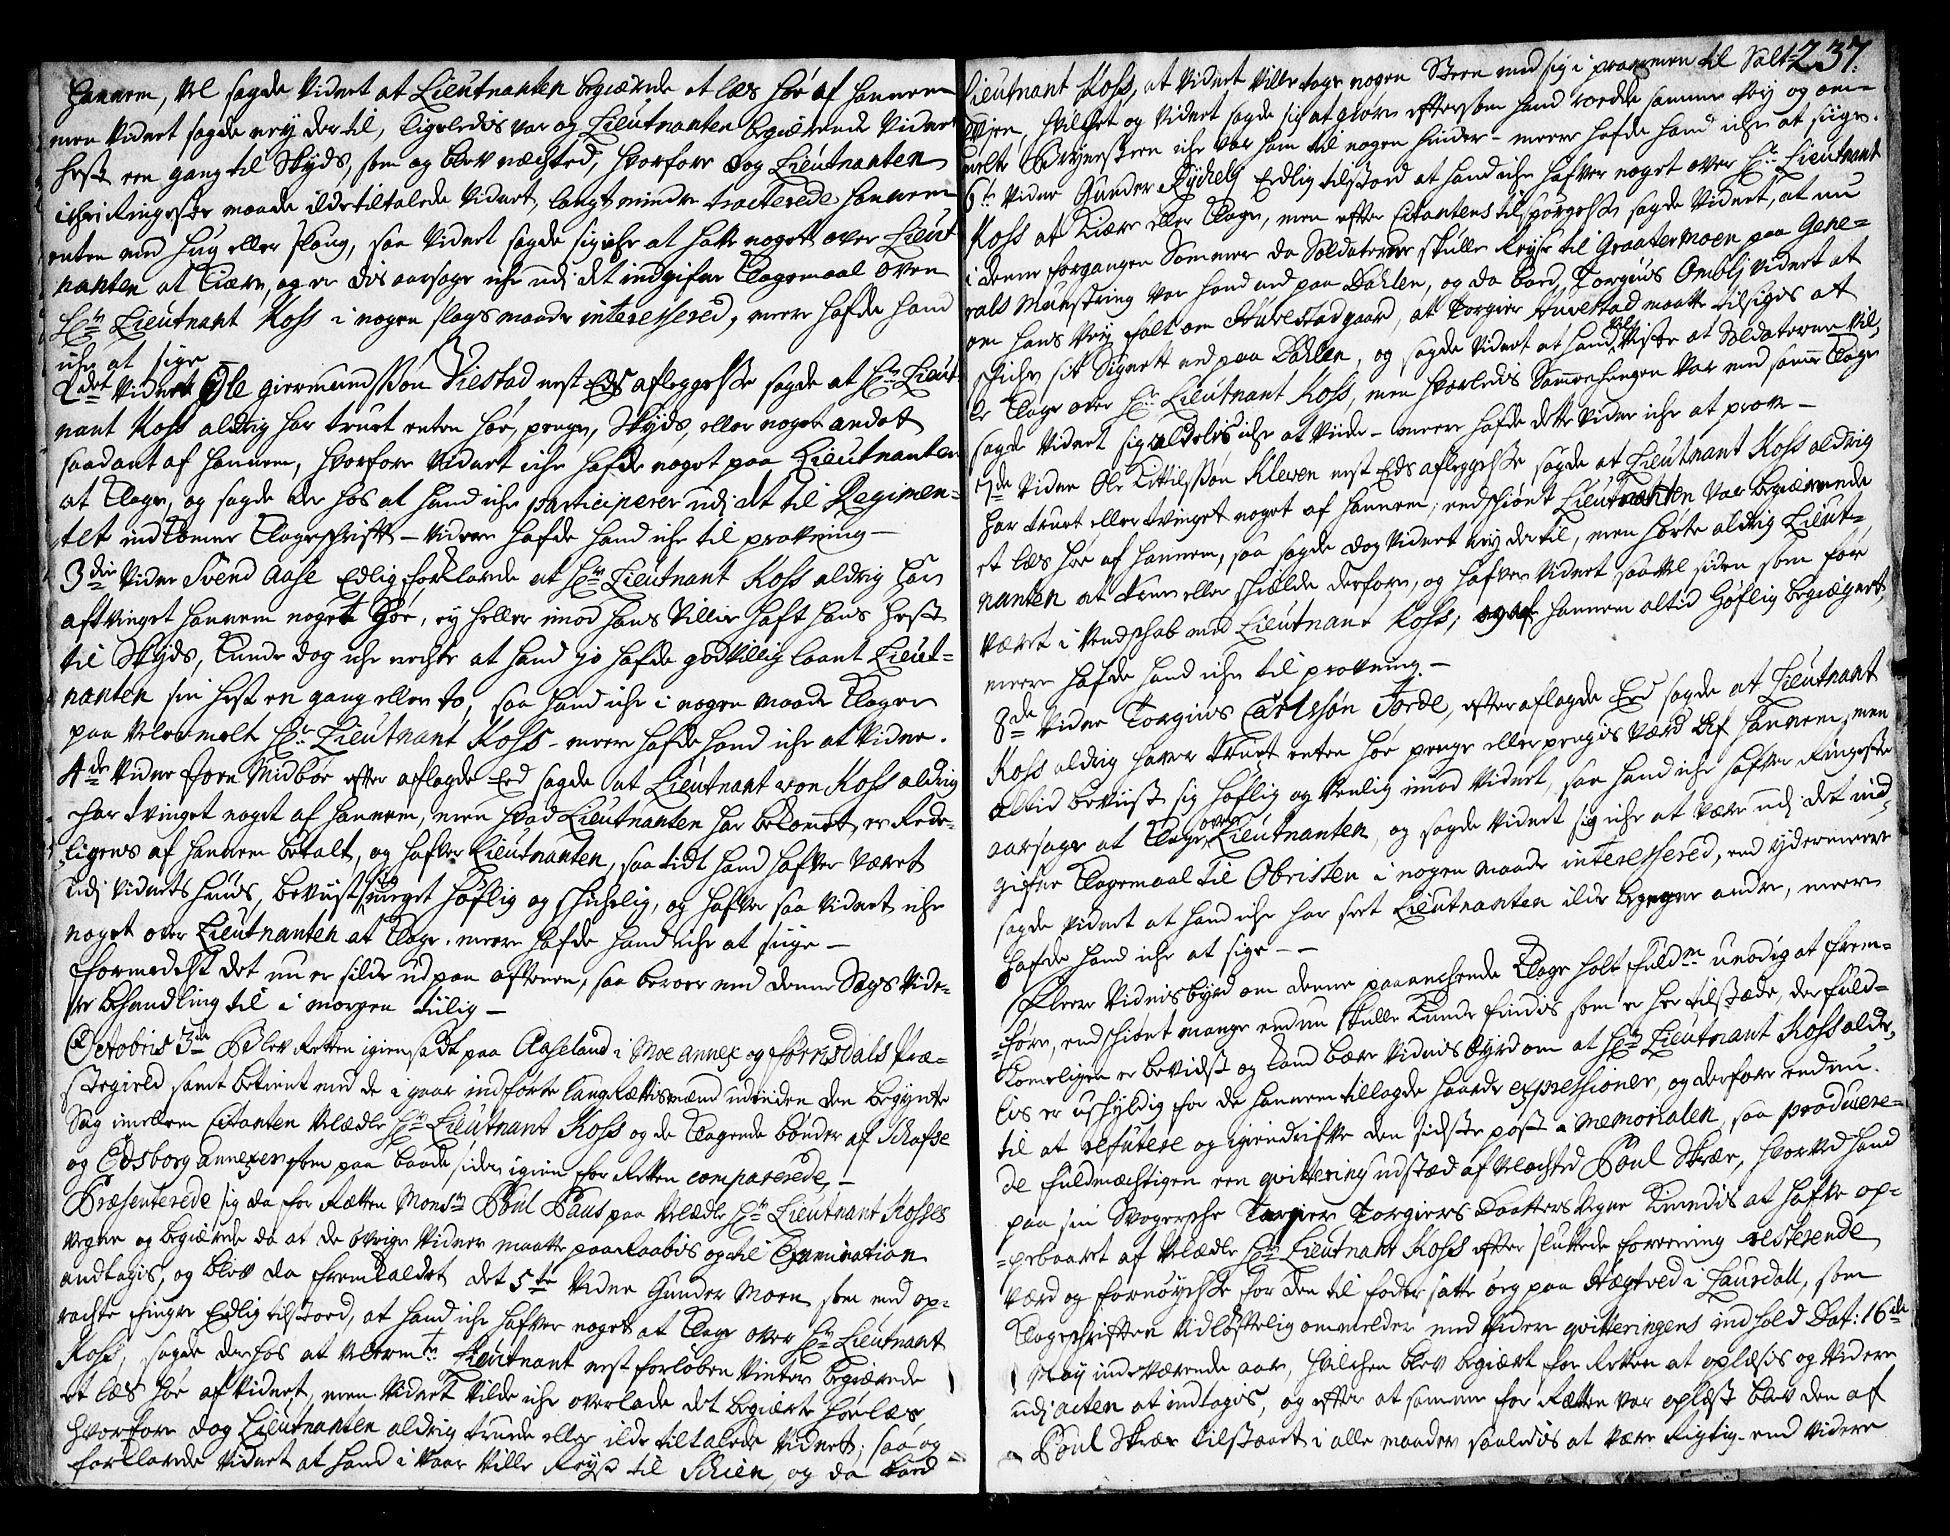 hannem, vel sagde vidnet at Lieutnanten begiærede et læs høe af hannem
men vidnet sagde ney der til, ligeledis var og Lieutnanten begiærende vidnets
hæst een gang til Skyds, som og blev nægtted, hvorfore dog Lieutnanten
iche i Ringeste maade ilde tiltalede vidnet, langt mindre tracterede hannem
enten med hug eller slaug, saa vidnet sagde sig iche at have noget over Lieut
nanten at Kiære, og er dis aarsage iche udi det indgifne Klagemaal over
Hr Lieutnant Koss i nogen slags maade interessered, meere hafde hand
iche at sige
2det vidnet Ole giermundssøn Viestad nest Eds afleggelse sagde at Hr Lieut-
nant Koss aldrig har truet enten høe, penge, Skyds, eller noget andet
saadant af hannem, hvorfore vidnet iche hafde noget paa Lieutnanten
at Klage, og sagde der hos at hand iche participerer udi det til Regimen-
tet indkomne Klageskrift - videre hafde hand iche til provning -
3die vidne Svend Aase Edlig forklarede at Hr Lieutnant Koss aldrig har
aftvinget hannem noget høe, ey heller imod hans villie haft hans hest
til Skyds, Kunde dog iche negte at hand jo hafde godvillig laant Lieut-
nanten sin hest en gang eller to, saa hand iche i nogen maade Klager
paa velbemelte Hr Lieutnant Koss - meere hafde hand iche at vidne.
4de vidne Jorn Midbøe efter aflagde Eed sagde at Lieutnant von Koss aldrig
har tvinget noget af hannem, men hvad Lieutnanten har bekomet er Rede-
ligens af hannem betalt, og hafver Lieutnanten, saa tidt hand hafver været
udi vidnets huus, beviist sig meget høflig og skichelig, og hafver saa vidnet iche
noget over Lieutnanten at Klage. meere hafde hand iche at siige -
Formedelst det nu er silde ud paa aftenen, saa beroer med denne Sags vide-
re behandling til i morgen tiilig -
Octobris 3de Blev Retten igien sadt paa Aaseland i Moe annex og Førrisdals Præ-
stegield samt betient med de i gaar indførte laugrættismænd udinden den begynte
Sag imellem Citanten velædle Hr Lieutnant Koss og de Klagende bønder af Schafse
og Edsborg annexer som paa baade sider igien for Retten comparerede, -
Præsenterede sig da for Rætten Monsr Poul Paus paa velædle Hr Lieutnant Kosses
vegne og begiærede da at de øvrige vidner maatte paaraabis og til Examination
andtagis, og blev da fremkaldet det 5te vidne Gunder Moen som med op-
rachte fingre Edlig tilstoed, at hand iche hafver noget at Klage over Hr Lieutnant
Koss, sagde derhos at velbemte Lieutnant nest forløben vinter begiærede
et læs høe af vidnet, men vidnet vilde iche overlade det begiærte høe læs,
hvorfore dog Lieutnanten aldrig truede eller ilde tiltalede vidnet; saa og
forklarede vidnet at hand i vaar ville Reyse til Schien, og da bad
237.
Lieutnant Koss, at vidnet ville tage nogen Steen med sig i prammen til Salt
Øjen, hvilket og vidnet sagde sig at giøre eftersom hand roedde samme vey og om-
melte Brynesteen iche var ham til nogen hinder - meere hafde hand iche at siige.
6te vidne Gunder Rychely Edlig tilstoed at hand iche hafver noget over Hr Lieutnant
Koss at Kiære eller Klage, men efter Citantens tilspørgelse sagde vidnet, at nu
i denne forgangen Sommer da Soldaterne skulle Reyse til Graatermoen paa Gene-
rals Munstring var hand ned paa Dahlen, og da bad Torgiuus Ombli vidnet at
om hans vey falt om Huvestad gaard, at Torgier Huvestad maatte tilsigis at
schiche sit Signett ned paa Dahlen, og sagde vidnet at hand vel viste at Soldaterne vil-
le Klage over Hr Lieutnant Koss, men hvorledis Sammenhengen var med samme Klage
sagde vidnet sig aldelis iche at viide - meere hafde dette vidne iche at prove -
7de vidne Ole Kittilssøn Kleven nest Eds afleggelse sagde at Lieutnant Koss aldrig
har truet eller tvinget noget af hannem; endskiønt Lieutnanten var begiærende
et læs høe af hannem, saa sagde dog vidnet ney der til, men hørte aldrig Lieut-
nanten at true eller skielde derfore, og hafver vidnet saavel siden som før
været i venskab med Lieutnant Koss, og af hannem altid høflig begiegnet,
meere hafde hand iche til provning. -
8de vidne Torgiuus Carlssøn Jorde, efter aflagde Eed sagde at Lieutnant
Koss aldrig haver truet enten høe penge eller pengis værd af hannem, men
altid beviist sig høflig og venlig imod vidnet, saa hand iche hafver Ringeste
aarsage at Klage over Lieutnanten, og sagde vidnet sig iche at være udi det ind-
gifne Klagemaal til Obristen i nogen maade interessered, end ydermeere
sagde vidnet at hand iche har seet Lieutnanten ilde begegne andre, meere
hafde hand iche at sige - -
Fleere vidnisbyrd om denne paaanchende Klage holt fuldm unødig at frem-
føre, endskiønt mange endnu skulle Kunde findis som er her tilstæde, der fuld-
komeligen er bevidst og Kand bære vidnisbyrd om at Hr Lieutnant Koss alde-
lis er uskyldig for de hannem tillagde haarde expressioner, og derfore endnu
til at refutere og igiendrifve den sidste post i Memorialen, saa producere-
de fuldmægtigen een qvittering udstæd af velagted Poul Skræe, hvorved hand
paa sin Svogersche Torgier Torgiers Daatters vegne Kiendis at hafve op-
pebaaret af velædle Hr Lieutnant Koss efter sluttede foreening resterende
værd og fornøyelse for den til foder satte øeg paa Hægtved i Laurdall, som
Klageskriften vidløftelig ommelder med videre qvitteringens indhold Dat: 16de
May indeværende aar, hvilchen blev begiært for Retten at oplæsis og videre
udj acten at indtagis, og efter at samme for Rætten var oplæst blev den af
Poul Skræe tilstaaet i alle maader saaledis at være Rigtig. end videre